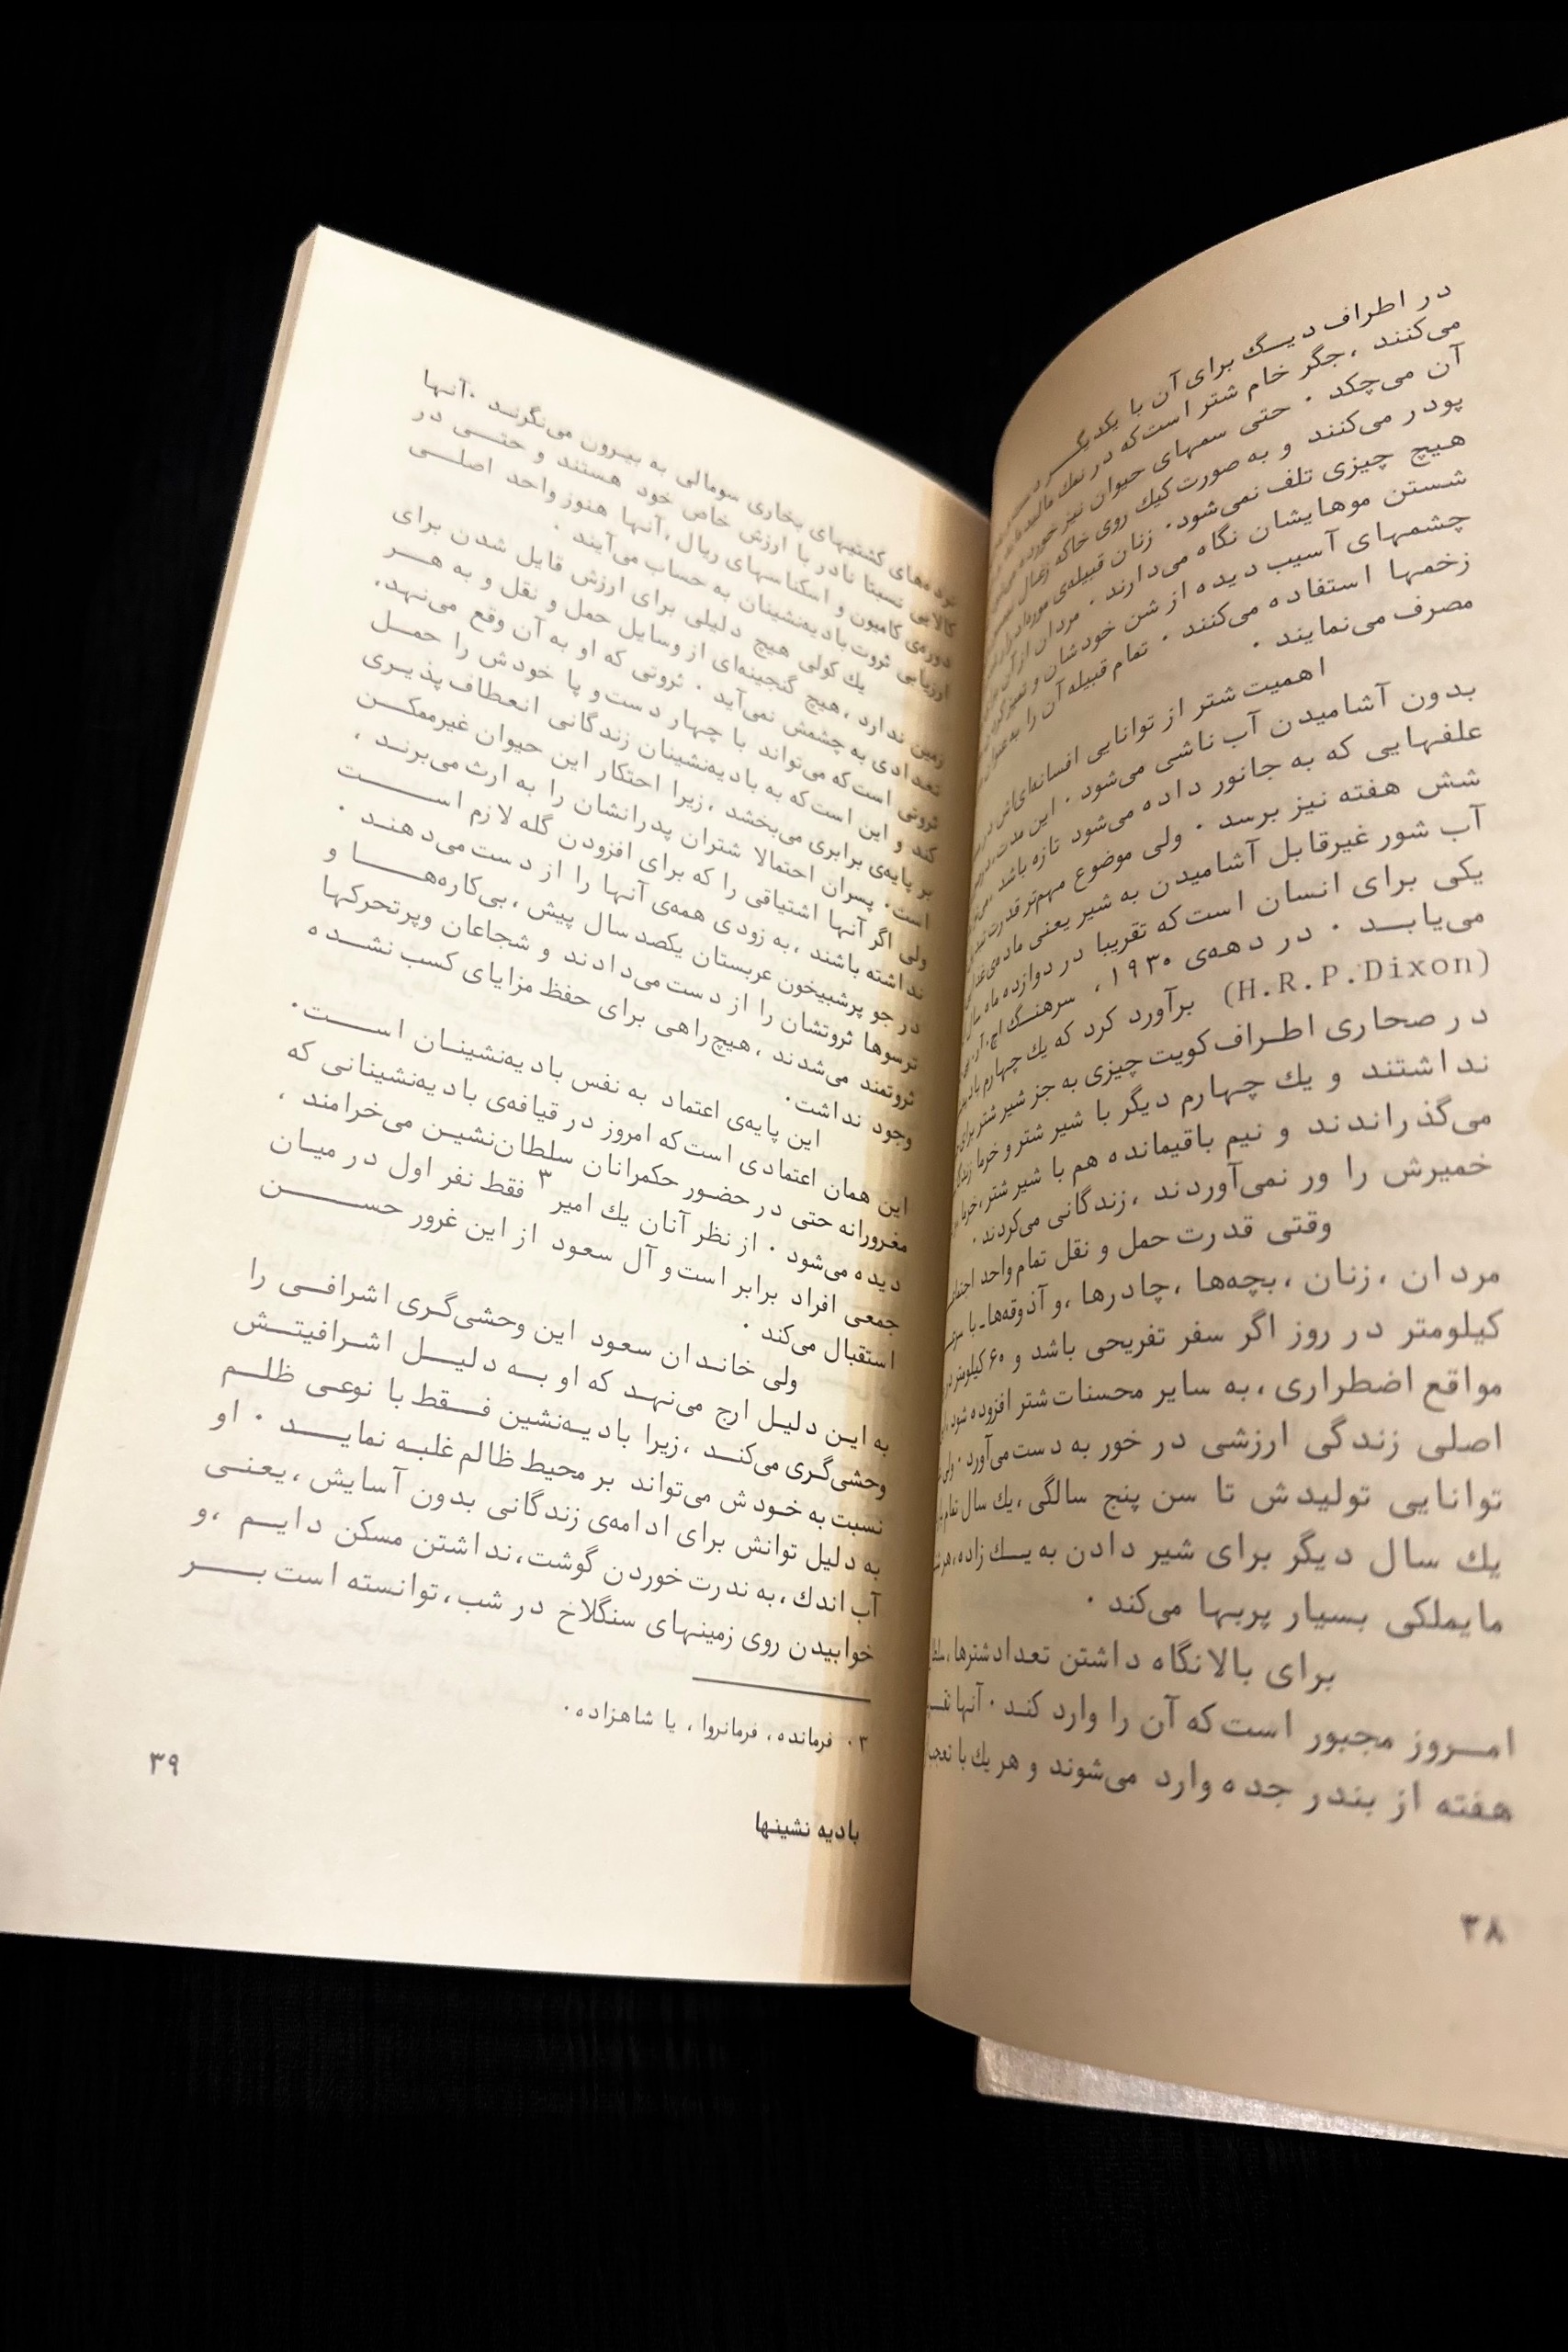 در اطراف دیگ برای آن با یکدیگر
می‌کنند ، جگر خام شتر است که در نمک
آن می‌چکد . حتی سمهای حیوان نیز خورده
پودر می‌کنند و به صورت کیک روی خاکه زغال
هیچ چیزی تلف نمی‌شود. زنان قبیله‌ی
شستن موهایشان نگاه می‌دارند . مردان از آن
چشمهای آسیب دیده از شن خودشان و
زخمها استفاده می‌کنند . تمام قبیله آن را
مصرف می‌نمایند .
اهمیت شتر از توانایی افسانه‌ای‌اش
بدون آشامیدن آب ناشی می‌شود . این مدت،
علفهایی که به جانور داده می‌شود تازه باشد
شش هفته نیز برسد . ولی موضوع مهم‌تر قدرت
آب شور غیرقابل آشامیدن به شیر یعنی ماده‌ی
یکی برای انسان است که تقریبا در دوازده ماه سال
می‌یابد . در دهه‌ی ۱۹۳۰ ، سرهنگ اچ. آر.
(H.R.P.Dixon) برآورد کرد که یک چهارم
در صحاری اطراف کویت چیزی به جز شیر شتر برای
نداشتند و یک چهارم دیگر با شیر شتر و خرما
می‌گذراندند و نیم باقیمانده هم با شیر شتر، خرما
خمیرش را ور نمی‌آوردند ، زندگانی می‌کردند .
وقتی قدرت حمل و نقل تمام واحد
مردان ، زنان ، بچه‌ها ، چادرها ، و آذوقه‌ها ـ با
کیلومتر در روز اگر سفر تفریحی باشد و ۶۰ کیلومتر
مواقع اضطراری ، به سایر محسنات شتر افزوده شود ،
اصلی زندگی ارزشی در خور به دست می‌آورد . ولی
توانایی تولیدش تا سن پنج سالگی ، یک سال تمام
یک سال دیگر برای شیر دادن به یک زاده ، هر
مایملکی بسیار پربها می‌کند .
برای بالا نگاه داشتن تعداد شترها ،
امروز مجبور است که آن را وارد کند . آنها
هفته از بندر جده وارد می‌شوند و هر یک با تعجب
۳۸
نرده‌های کشتیهای بخاری سومالی به بیرون می‌نگرند . آنها
کالایی نسبتا نادر با ارزش خاص خود هستند و حتی در
دوره‌ی کامیون و اسکناسهای ریال ، آنها هنوز واحد اصلی
ارزیابی ثروت بادیه‌نشینان به حساب می‌آیند .
یک کولی هیچ دلیلی برای ارزش قایل شدن برای
زمین ندارد ، هیچ گنجینه‌ای از وسایل حمل و نقل و به هر
تعدادی به چشمش نمی‌آید . ثروتی که او به آن وقع می‌نهد،
ثروتی است که می‌تواند با چهار دست و پا خودش را حمل
کند و این است که به بادیه‌نشینان زندگانی انعطاف پذیری
بر پایه‌ی برابری می‌بخشد ، زیرا احتکار این حیوان غیرممکن
است. پسران احتمالا شتران پدرانشان را به ارث می‌برند ،
ولی اگر آنها اشتیاقی را که برای افزودن گله لازم است
نداشته باشند ، به زودی همه‌ی آنها را از دست می‌دهند .
در جو پرشبیخون عربستان یکصد سال پیش ، بی‌کاره‌ها و
ترسوها ثروتشان را از دست می‌دادند و شجاعان و پرتحرکها
ثروتمند می‌شدند ، هیچ راهی برای حفظ مزایای کسب نشده
وجود نداشت.
این پایه‌ی اعتماد به نفس بادیه‌نشینان است.
این همان اعتمادی است که امروز در قیافه‌ی بادیه‌نشینانی که
مغرورانه حتی در حضور حکمرانان سلطان‌نشین می‌خرامند ،
دیده می‌شود . از نظر آنان یک امیر۳ فقط نفر اول در میان
جمعی افراد برابر است و آل سعود از این غرور حسن
استقبال می‌کند .
ولی خاندان سعود این وحشی‌گری اشرافی را
به این دلیل ارج می‌نهد که او به دلیل اشرافیتش
وحشی‌گری می‌کند ، زیرا بادیه‌نشین فقط با نوعی ظلم
نسبت به خودش می‌تواند بر محیط ظالم غلبه نماید . او
به دلیل توانش برای ادامه‌ی زندگانی بدون آسایش ، یعنی
آب اندک ، به ندرت خوردن گوشت، نداشتن مسکن دایم ، و
خوابیدن روی زمینهای سنگلاخ در شب ، توانسته است بر
۳ . فرمانده ، فرمانروا ، یا شاهزاده .
۳۹
بادیه نشینها